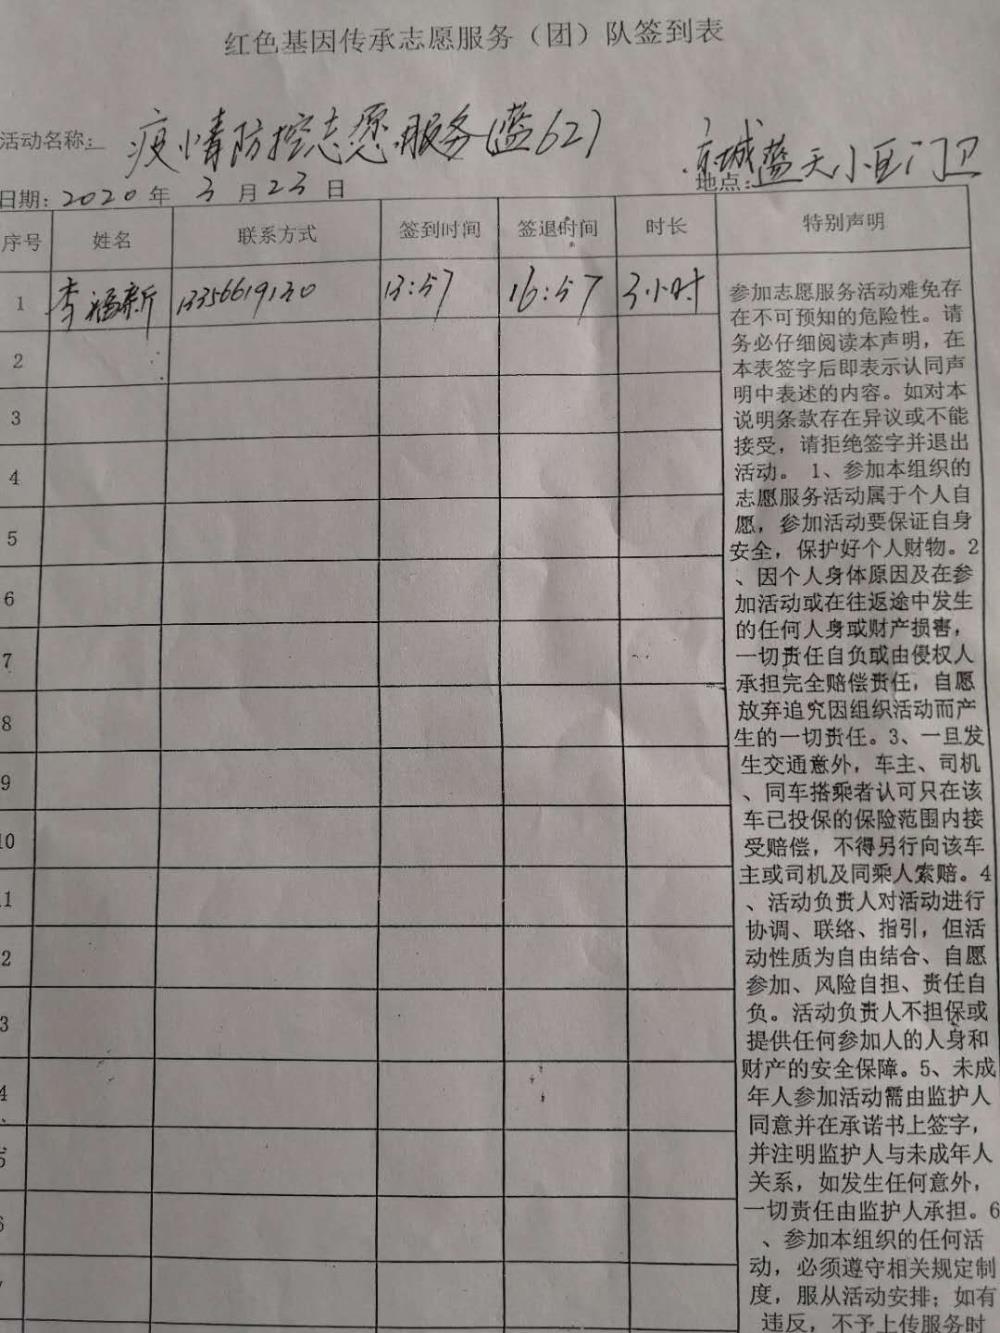 红色基因传承志愿服务（团）队签到表
活动名称： 疫情防控志愿服务(蓝62)
京城蓝天小区门卫
日期：2020年 3月23日 地点：
序号 姓名 联系方式 签到时间 签退时间 时长 特别声明
1 李福新 13356619130 13:57 16:57 3小时
2
3
4
5
6
7
8
9
10
1
2
3
4
5
6
参加志愿服务活动难免存
在不可预知的危险性。请
务必仔细阅读本声明，在
本表签字后即表示认同声
明中表述的内容。如对本
说明条款存在异议或不能
接受，请拒绝签字并退出
活动。 1、参加本组织的
志愿服务活动属于个人自
愿，参加活动要保证自身
安全，保护好个人财物。2
、因个人身体原因及在参
加活动或在往返途中发生
的任何人身或财产损害，
一切责任自负或由侵权人
承担完全赔偿责任，自愿
放弃追究因组织活动而产
生的一切责任。3、一旦发
生交通意外，车主、司机
、同车搭乘者认可只在该
车已投保的保险范围内接
受赔偿，不得另行向该车
主或司机及同乘人索赔。4
、活动负责人对活动进行
协调、联络、指引，但活
动性质为自由结合、自愿
参加、风险自担、责任自
负。活动负责人不担保或
提供任何参加人的人身和
财产的安全保障。5、未成
年人参加活动需由监护人
同意并在承诺书上签字，
并注明监护人与未成年人
关系，如发生任何意外，
一切责任由监护人承担。6
、参加本组织的任何活
动，必须遵守相关规定制
度，服从活动安排；如有
违反，不予上传服务时